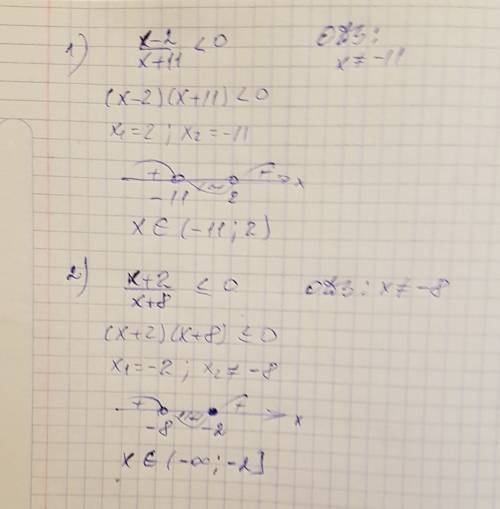 1) (x-2)/(x+11) < 0 ОДЗ: x ≠ -11
(x-2)(x+11) < 0
x₁=2 ; x₂=-11
+ - + x
-11 2
x ∈ (-11; 2)
2) (x+2)/(x+8) ≤ 0 ОДЗ: x ≠ -8
(x+2)(x+8) ≤ 0
x₁=-2 ; x₂≠-8
+ - + x
-8 -2
x ∈ (-∞; -2]